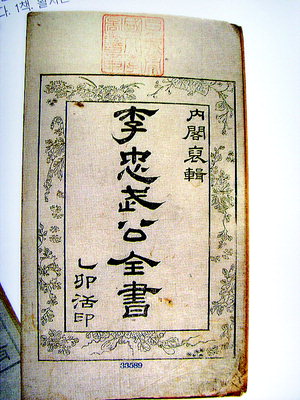 다. 1책.
內閣裒輯
李忠武公全書
乙卯活印
33589